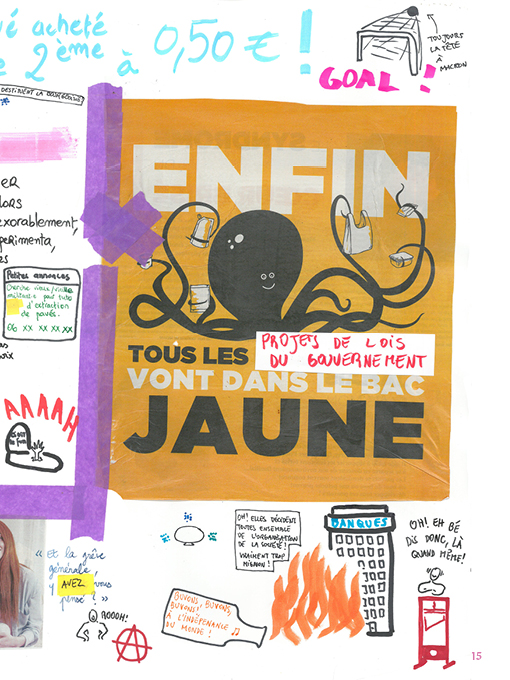 é acheté
e 2ème à 0,50 € !
TOUJOURS
LA TÊTE
À
MACRON
GOAL !
DESTINENT LA
ER
LORS
exorablement,
perimenta,
es
Petites annonces
militaire pour tuto
d'extraction
de pavés.
06 XX XX XX XX
oix
ENFIN
TOUS LES
PROJETS DE LOIS
DU GOUVERNEMENT
VONT DANS LE BAC
JAUNE
AAAAH
« Et la grève
générale,
y AVEZ vous
pensé ? »
AOOOH!
A
OH! ELLES DÉCIDENT
TOUTES ENSEMBLE
DE L'ORGANISATION
DE LA SOCIÉTÉ!
VRAIMENT TROP
MIGNON!
BUVONS, BUVONS,
BUVONS!
À L'INDÉPENANCE
DU MONDE !
BANQUES
OH! EH BÉ
DIS DONC, LÀ
QUAND MÊME!
15